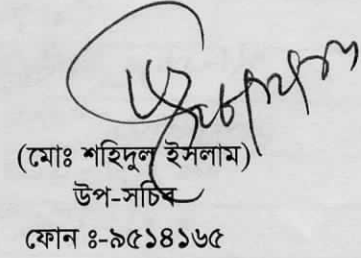 (মোঃ শহিদুল ইসলাম)
উপ-সচিব
ফোন ঃ-৯৫১৪১৬৫